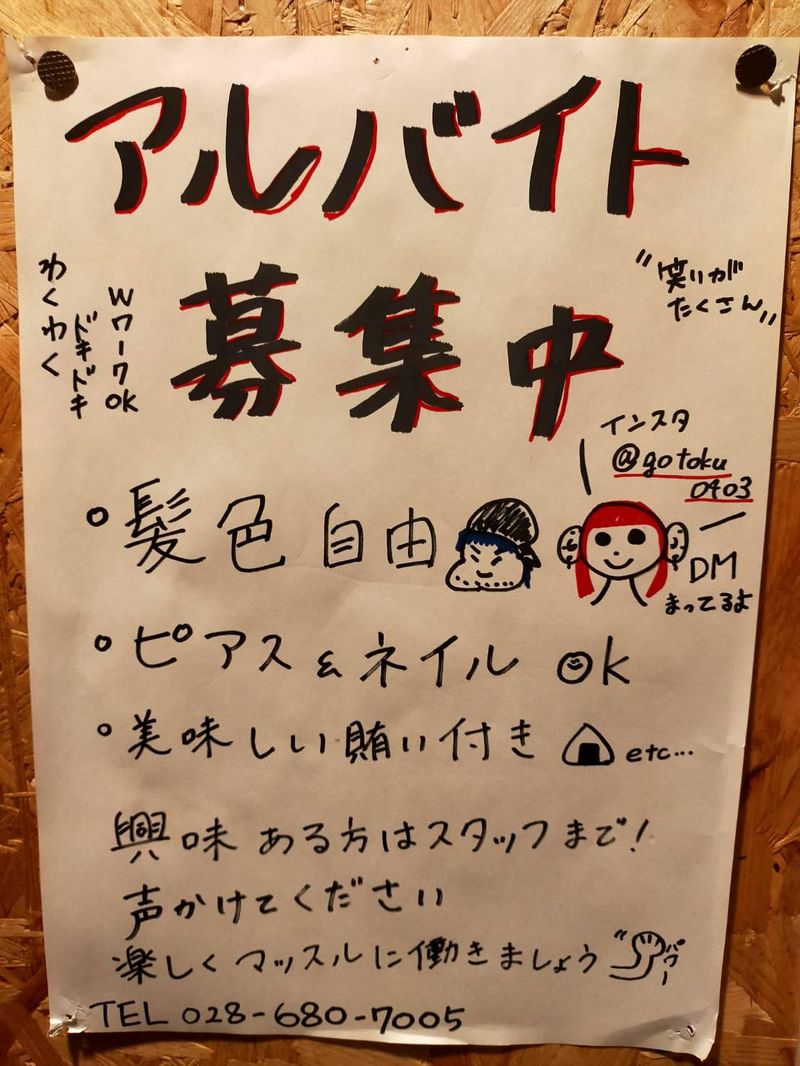 アルバイト
募集中
わくわく
ドキドキ
WワークOK
"笑いが
たくさん"
インスタ
@gotoku
0403
DM
まってるよ
°髪色自由
°ピアス&ネイル OK
°美味しい賄い付き etc...
興味ある方はスタッフまで!
声かけてください
楽しくマッスルに働きましょう
パワー
TEL 028-680-7005